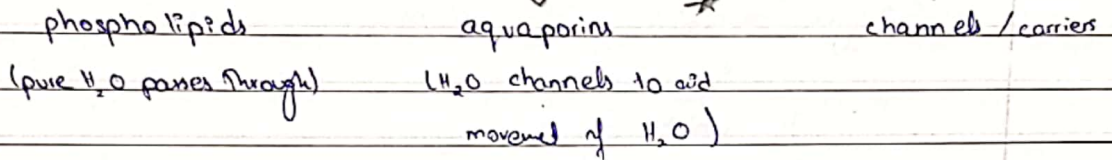 phospholipids aquaporins channels / carriers
(pure H₂O passes through) (H₂O channels to aid
movement of H₂O)